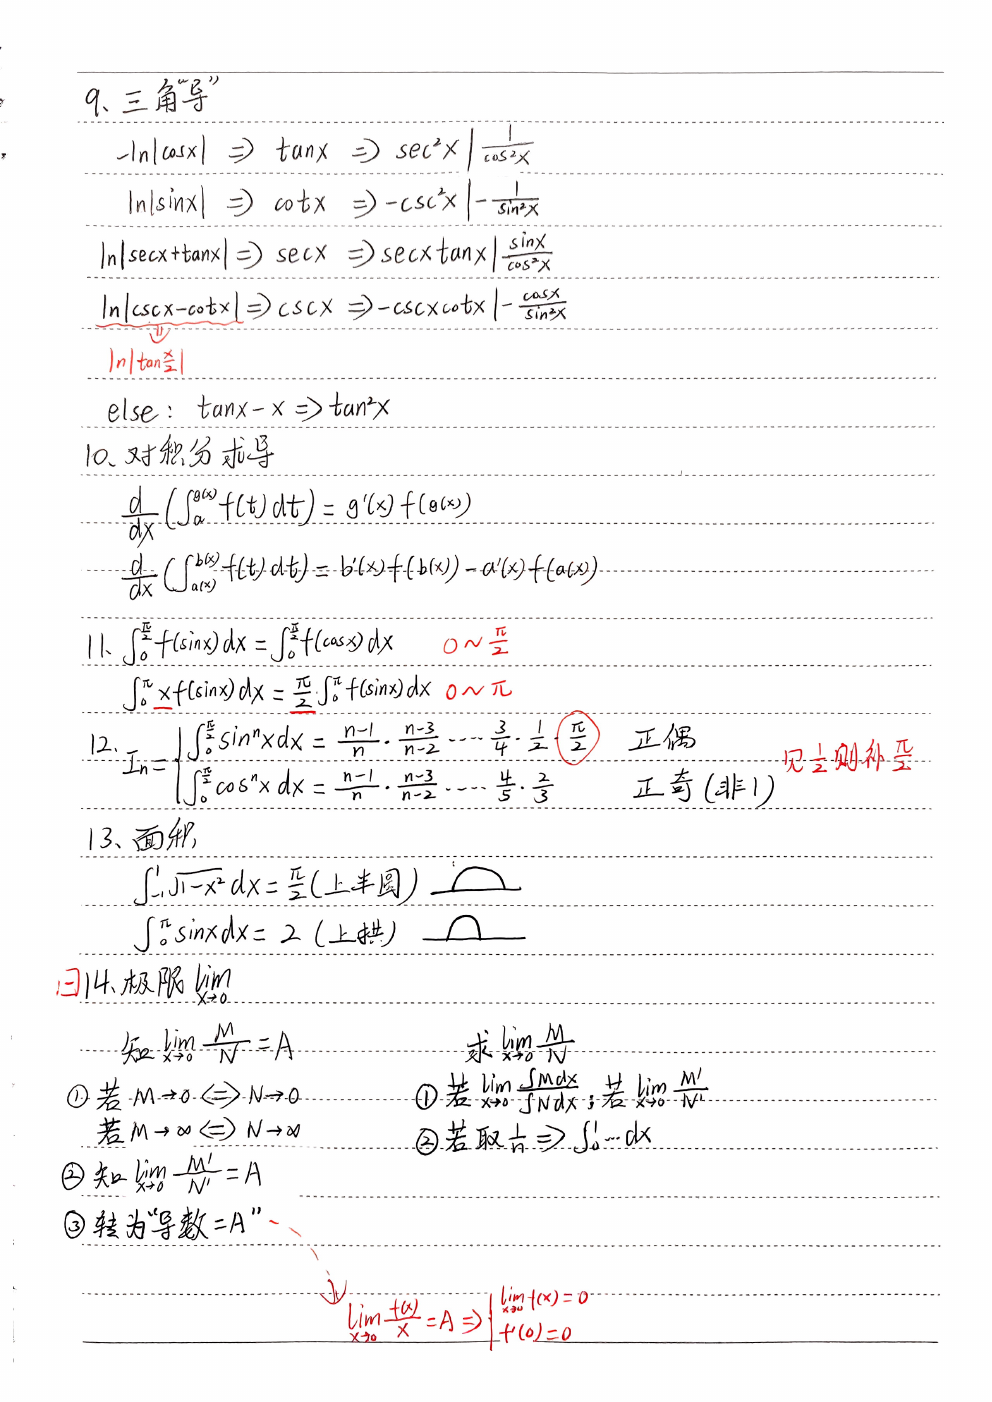 9、三角“导”
-ln|cosx| ⇒ tanx ⇒ sec²x | 1/cos²x
ln|sinx| ⇒ cotx ⇒ -csc²x | -1/sin²x
ln|secx+tanx| ⇒ secx ⇒ secxtanx | sinx/cos²x
ln|cscx-cotx| ⇒ cscx ⇒ -cscxcotx | -cosx/sin²x
⇓
ln|tan x/2|
else: tanx-x ⇒ tan²x
10、对积分求导
d/dx (∫_a^{g(x)} f(t)dt) = g'(x)f(g(x))
d/dx (∫_{a(x)}^{b(x)} f(t)dt) = b'(x)f(b(x)) - a'(x)f(a(x))
11、∫_0^{π/2} f(sinx)dx = ∫_0^{π/2} f(cosx)dx 0~π/2
∫_0^π xf(sinx)dx = π/2·∫_0^π f(sinx)dx 0~π
12、In = { ∫_0^{π/2} sinⁿxdx = n-1/n · n-3/n-2 ···· 3/4 · 1/2 · π/2 正偶
∫_0^{π/2} cosⁿxdx = n-1/n · n-3/n-2 ···· 4/5 · 2/3 正奇(非1)
见1/2则补π/2
13、面积
∫_{-1}^1 √1-x² dx = π/2 (上半圆)
∫_0^π sinxdx = 2 (上拱)
曰14、极限 lim x→0
知 lim x→0 M/N = A 求 lim x→0 M/N
① 若 M→0 ⇔ N→0 ① 若 lim x→0 ∫Mdx/∫Ndx ; 若 lim x→0 M'/N'
若 M→∞ ⇔ N→∞ ② 若取 1/n ⇒ ∫_0^1 ···dx
② 知 lim x→0 M'/N' = A
③ 转为“导数=A”
lim x→0 f(x)/x = A ⇒ | lim x→0 f(x)=0
f'(0)=0